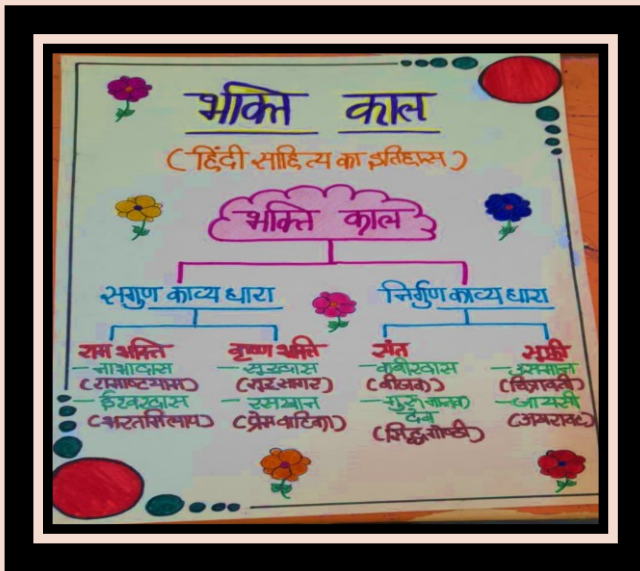 भक्ति काल
(हिंदी साहित्य का इतिहास)
भक्ति काल
सगुण काव्य धारा
निर्गुण काव्य धारा
राम भक्ति
- नाभादास
(रामाष्टयाम)
- ईश्वरदास
(भरतमिलाप)
कृष्ण भक्ति
- सूरदास
(सूरसागर)
- रसखान
(प्रेमवाटिका)
संत
- कबीरदास
(बीजक)
- गुरु नानक
देव
(सिद्धगोष्ठी)
सूफी
- उसमान
(चित्रावली)
- जायसी